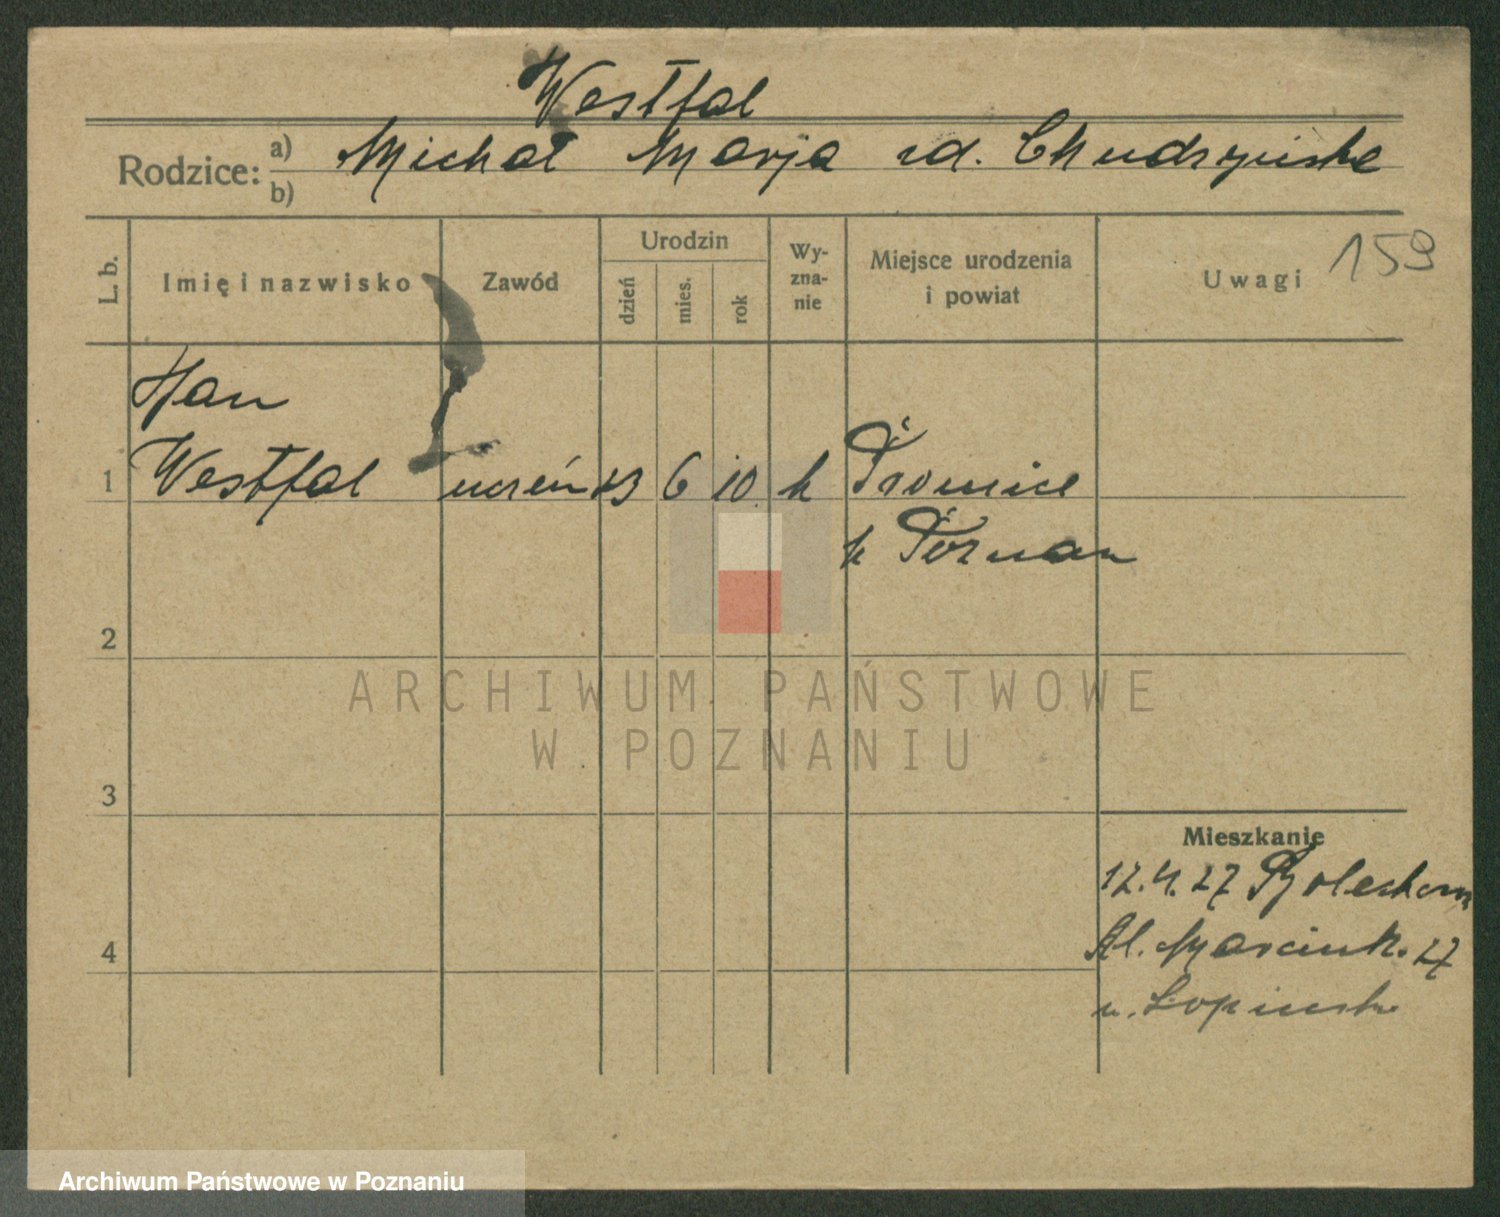 Westfal
Rodzice: a) Michał Marja zd. Chudzyńska
b)
L. b. Imię i nazwisko Zawód Urodzin dzień mies. rok Wy-zna-nie Miejsce urodzenia i powiat Uwagi 159
Jan
1 Westfal uczeń 23 6 10 k
p Poznań
2
3
4
Mieszkanie
12.4.27
Al. Marcink. 27
u.
ARCHIWUM PAŃSTWOWE
W POZNANIU
Archiwum Państwowe w Poznaniu